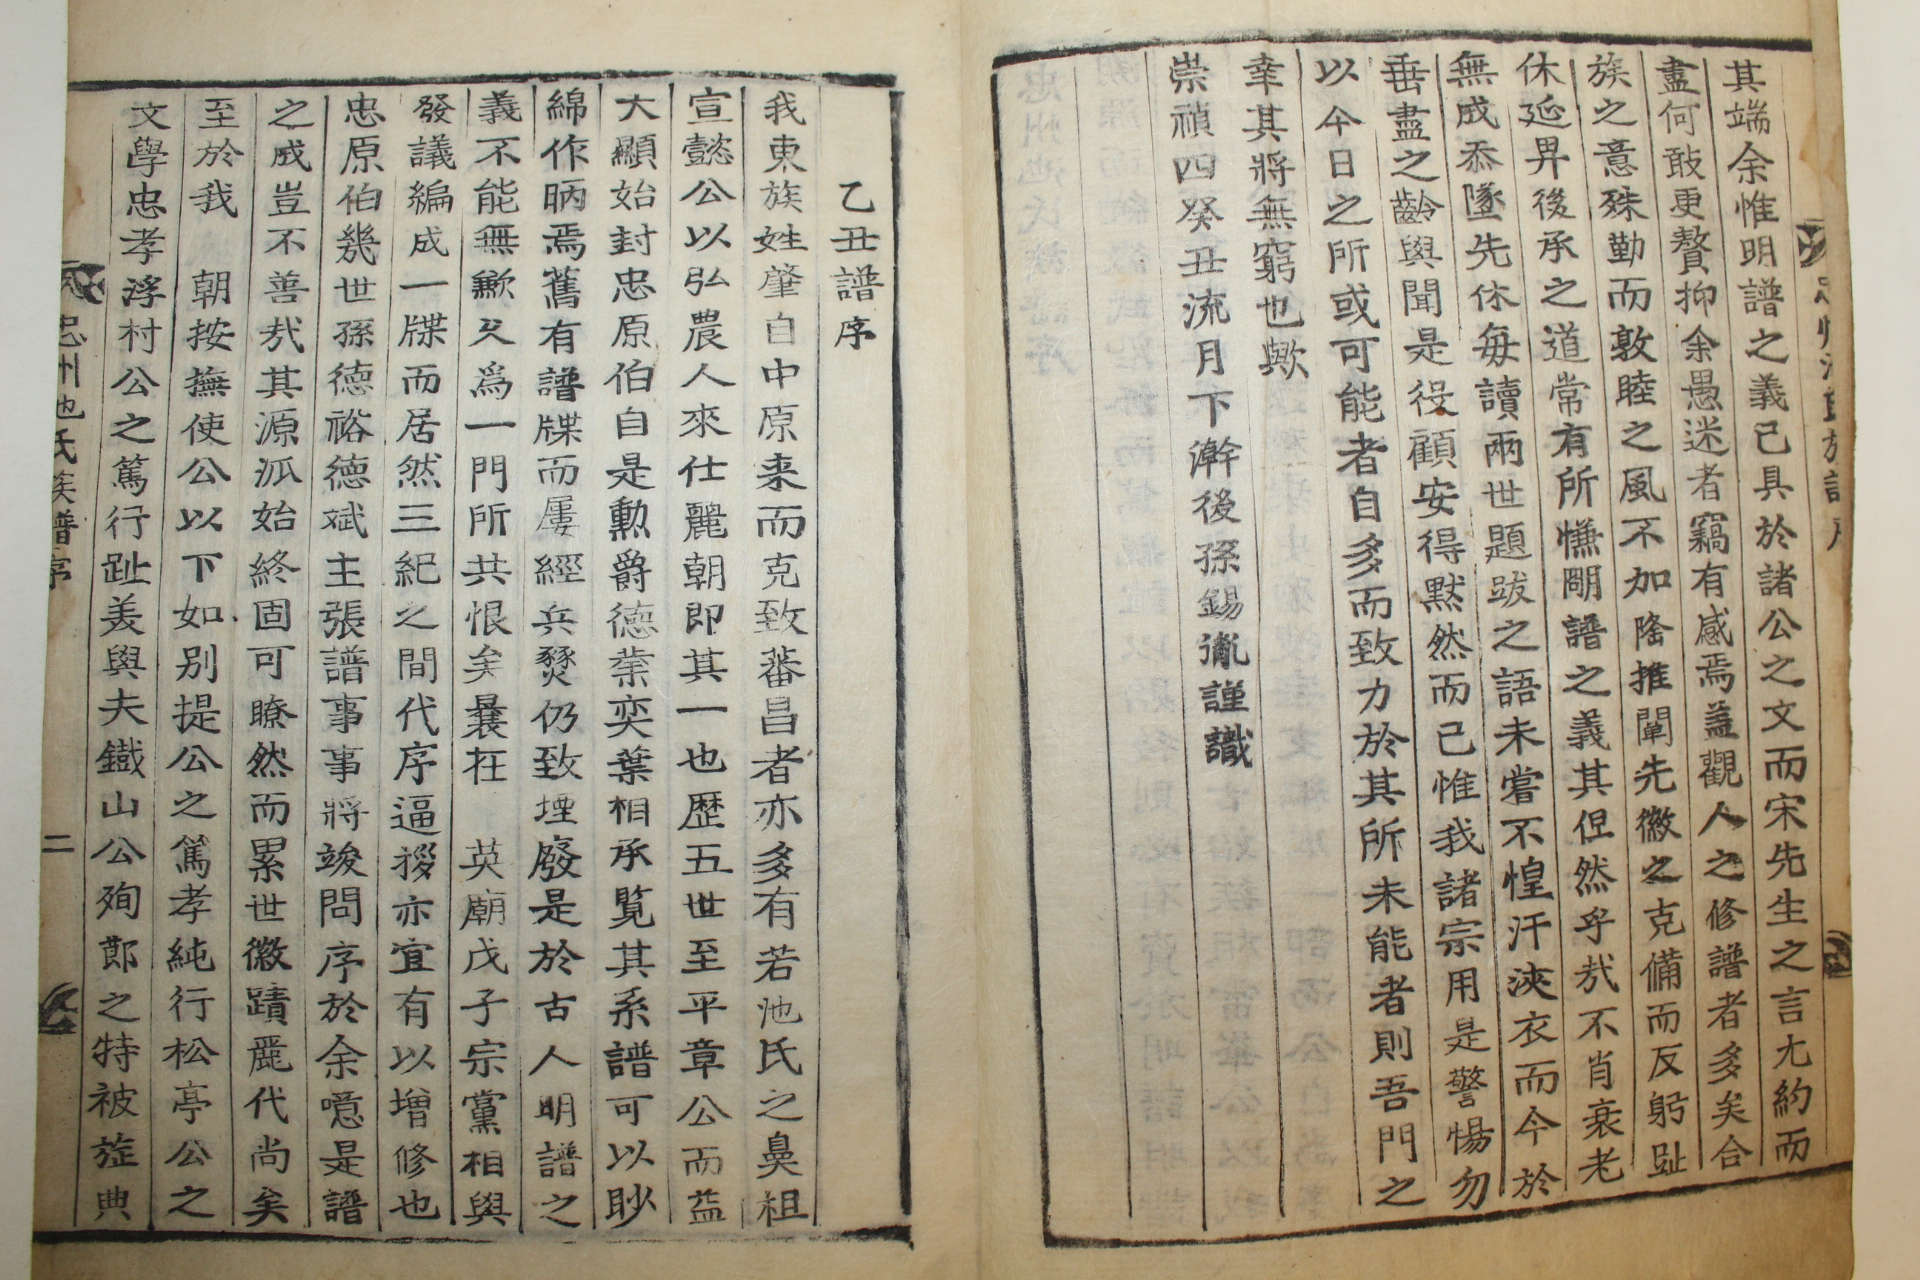 忠州池氏族譜序
其端余惟明譜之義已具於諸公之文而宋先生之言尤約而
盡何敢更贅抑余愚迷者竊有感焉盖觀人之修譜者多矣合
族之意殊勤而敦睦之風不加隆推闡先徽之克備而反躬趾
休延昇後承之道常有所慊關譜之義其但然乎㢤不肖衰老
無成忝墜先休每讀兩世題跋之語未嘗不惶汗浹衣而今於
垂盡之齡與聞是役顧安得黙然而已惟我諸宗用是警惕勿
以今日之所或可能者自多而致力於其所未能者則吾門之
幸其將無窮也歟
崇禎四癸丑流月下澣後孫錫胤謹識
乙丑譜序
我東族姓肇自中原来而克致蕃昌者亦多有若池氏之鼻祖
宣懿公以弘農人來仕麗朝即其一也歷五世至平章公而益
大顯始封忠原伯自是勳爵德業奕葉相承覧其系譜可以眇
綿作昞焉舊有譜牒而屢經兵燹仍致堙廢是於古人明譜之
義不能無歉久爲一門所共恨矣曩在 英廟戊子宗黨相與
發議編成一牒而居然三紀之間代序逼䙚亦宜有以增修也
忠原伯幾世孫德裕德斌主張譜事事將竣問序於余噫是譜
之成豈不善㢤其源派始終固可瞭然而累世徽蹟麗代尚矣
至於我 朝按撫使公以下如别提公之篤孝純行松亭公之
文學忠孝浮村公之篤行趾美與夫鐵山公殉節之特被旌典
忠州池氏族譜序
二